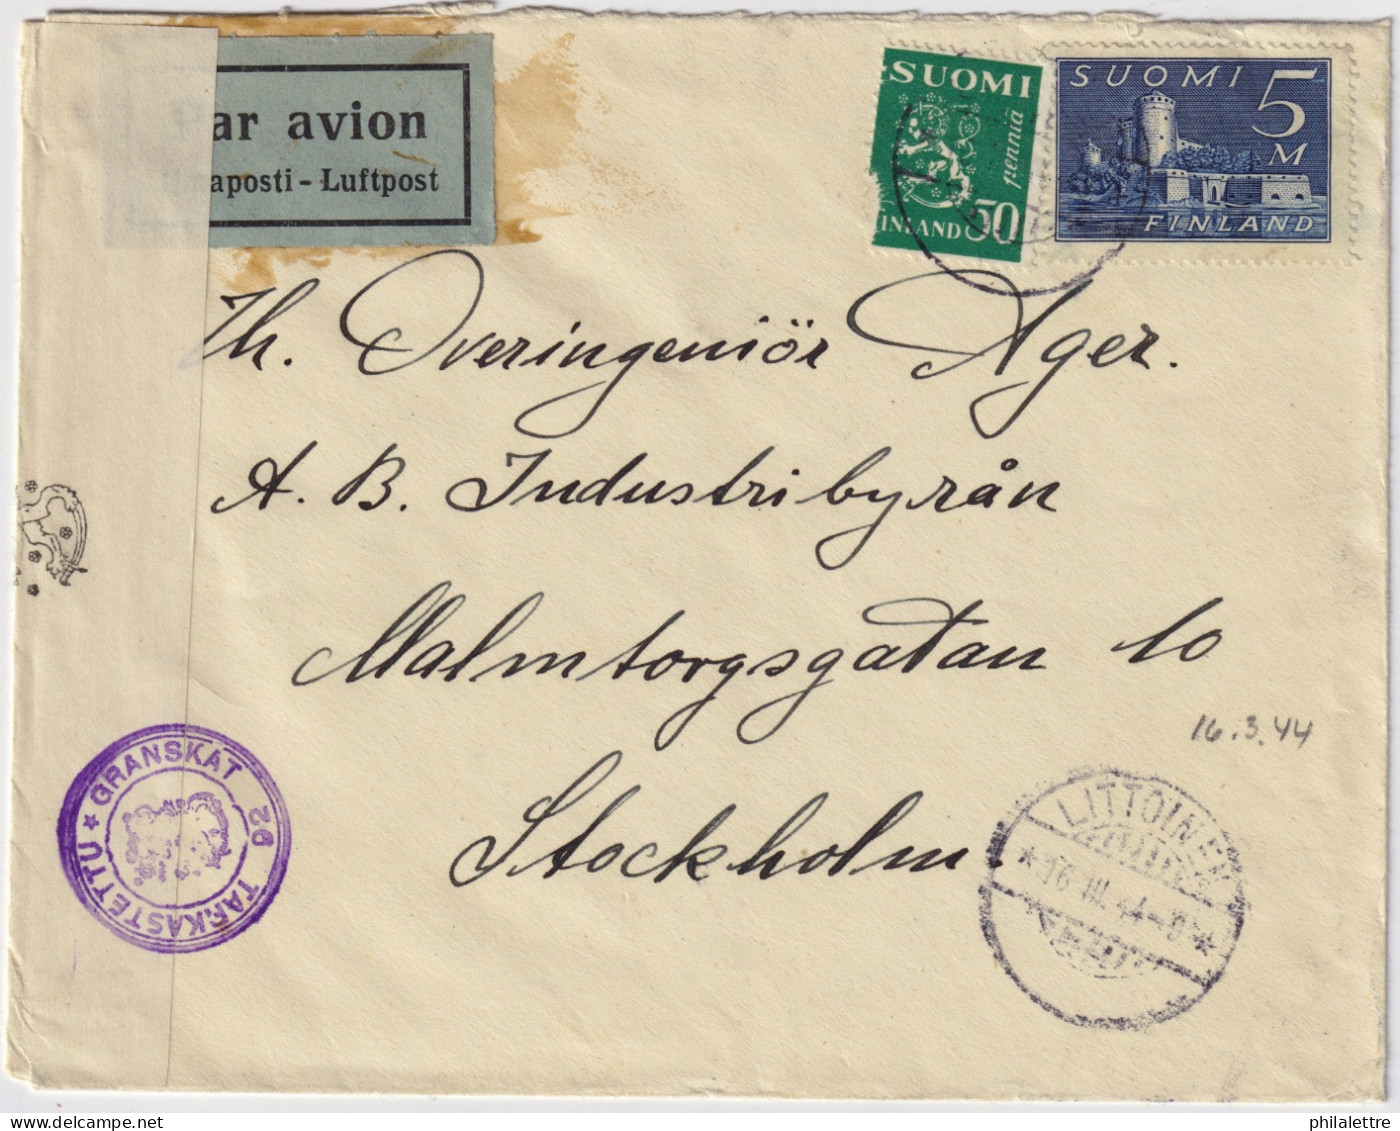 ar avion
aposti - Luftpost
SUOMI
penniä
FINLAND 50
SUOMI 5
M
FINLAND
Th. Överingeniör Ager.
A. B. Industribyrån
Malmtorgsgatan 10
Stockholm.
16.3.44
LITTOINEN
* 16.III.44
GRANSKAT 92 TARKASTETTU *
philalettre